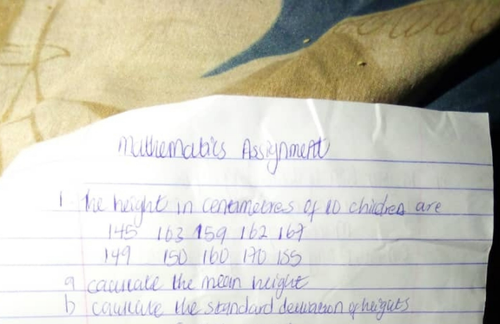 Mathematics Assignment
1 The height in centimetres of 10 children are
145 163 159 162 167
149 150 160 170 155
a calculate the mean height
b calculate the standard deviation of heights